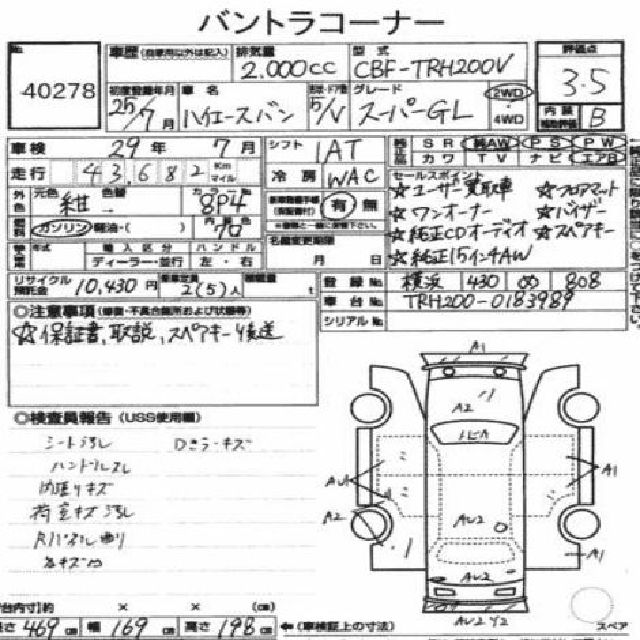 バントラコーナー
No. 40278
車歴 (自家用以外は記入)
排気量 2.000cc
型式 CBF-TRH200V
評価点 3.5
内装 B
初度登録年月 25/7月
車名 ハイエースバン
5/V
グレード スーパーGL
2WD
4WD
車検 29年 7月
シフト 1AT
SR 純AW PS PW
カワ TV ナビ エアB
走行 43,682 Km マイル
冷房 WAC
セールスポイント
☆ユーザー買取車 ☆フロアマット
☆ワンオーナー ☆バイザー
☆純正CDオーディオ ☆スペアキー
☆純正15インチAW
外色 元色 紺 色替 カラーNo. 8P4
有 無
ガソリン 軽油・( ) 内装色 グロ
名義変更期限 月 日
年式 輸入区分 ハンドル
ディーラー・並行 左・右
リサイクル預託金 10,430円
乗車定員 2(5)人
積載量 t
登録No. 横浜 430 の 808
車台No. TRH200-0183989
シリアルNo.
◎注意事項 (修復・不具合箇所および状態等)
☆保証書、取説、スペアキー後送
◎検査員報告 (USS使用欄)
シート汚レ Dきラーキズ
ハンドルスレ
内張リキズ
荷室キズ汚レ
Rパネル曲り
A1
A2
A1
A2
AU2
A1
AU2
AU2
スペア
台内寸)約 × × (cm)
長さ 469cm 幅 169cm 高さ 198cm ←(車検証上の寸法)